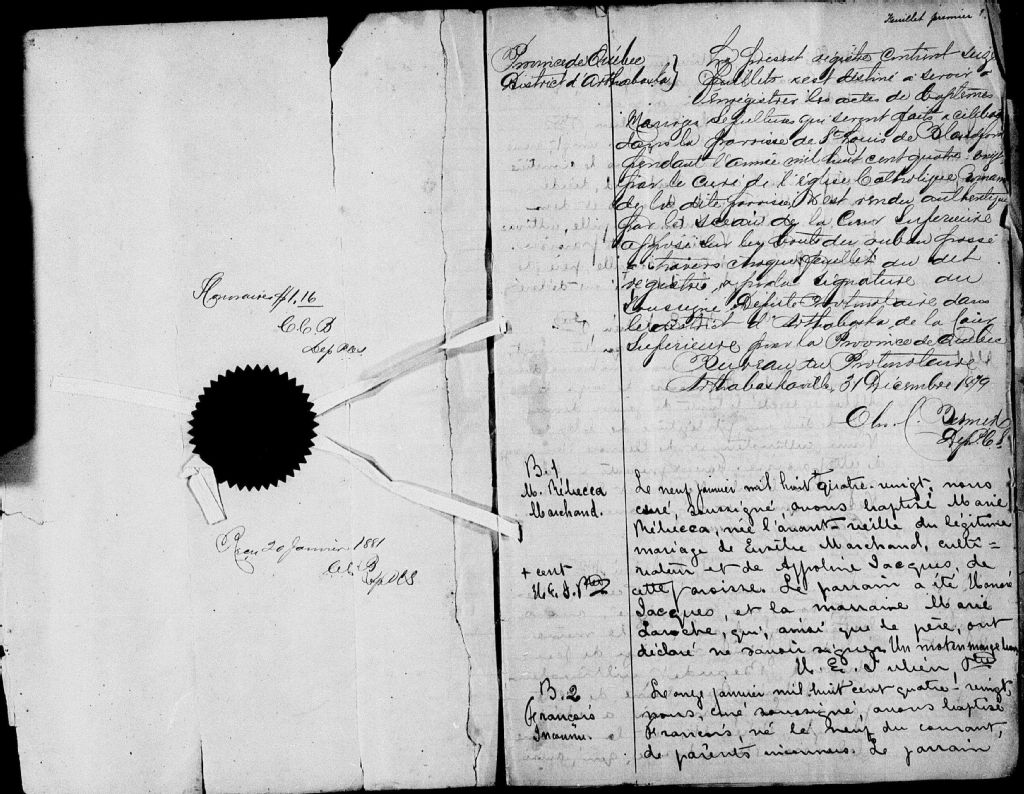 Honoraires $1.16
C.C.B
Dep PCS
Reçu 20 Janvier 1881
Dep PCS
Feuillet premier
Province de Québec
District d'Arthabaska
Le présent registre contient seize
feuillets & est destiné à servir à
enregistrer les actes de Baptêmes
Mariages & Sépultures qui seront faits & célébrés
dans la paroisse de St Louis de Blandford
pendant l'année mil huit cent quatre-vingt
par le curé de l'église Catholique Romaine
de la dite paroisse, & est rendu authentique
par le sceau de la Cour Supérieure
apposé sur les bouts du ruban passé
à travers chaque feuillet du dit
registre, & par la signature du
Soussigné Député Protonotaire dans
le district d'Arthabaska de la Cour
Supérieure pour la Province de Québec
Bureau du Protonotaire
Arthabaskaville, 31 Decembre 1879
Dep P.C.S.
B. 1
M. Rébecca
Marchand.
+ cent
U. E. J. Ptre
Le neuf janvier mil huit + quatre-vingt, nous
curé, soussigné, avons baptisé Marie
Rébecca, née l'avant-veille du légitime
mariage de Eusèbe Marchand, culti-
vateur et de Appoline Jacques, de
cette paroisse. Le parrain a été Honoré
Jacques, et la marraine Marie
Laroche, qui, ainsi que le père, ont
déclaré ne savoir signer. Un mot en marge bon
U. E. Julien Ptre
B. 2
François
Inconnu.
Le onze janvier mil huit cent quatre-vingt
nous, curé soussigné, avons baptisé
François, né le neuf du courant,
de parents inconnus. Le parrain